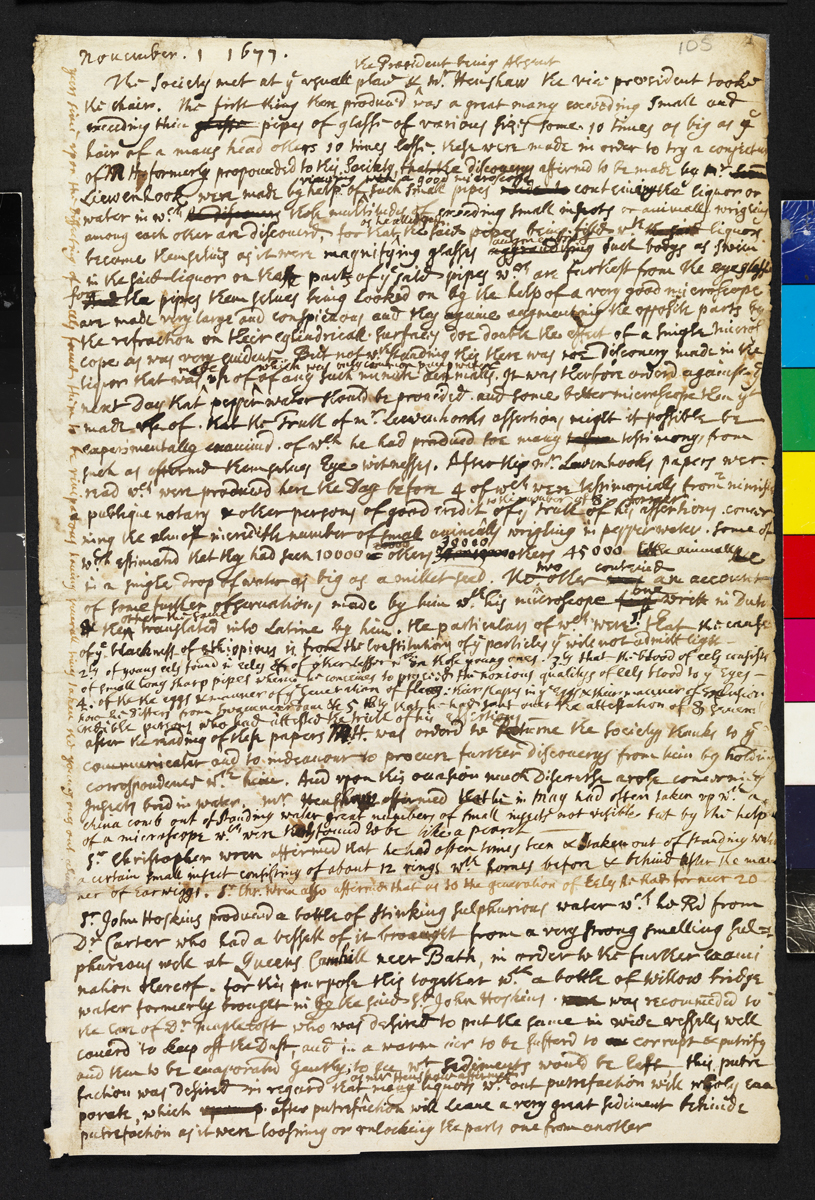 105
November. 1 1677.
the President being Absent
The Society met at ye usuall place & Mr. Henshaw the vice president tooke
the chair. The first thing there produced was a great many exceeding small and
exceeding thin pipes of glasse of various sizes some. 10 times as big as ye
hair of a mans head others 10 times lesse. these were made in order to try a conjecture
of Mr H formerly propounded to this Society, that the discoverys affirmd to be made by Mr.
viewing with a good microscope
Liewenhook were made by help of such small pipes containing the liquor or
water in wch those multitudes of exceeding small insects or animalls wrigling
as he alledged
among each other are discoverd, for that the said pipes being filled wth liquors
become themselves as it were magnifying glasses augmenting such bodys as swim
in the said liquor on that part of ye said pipes wch are furthest from the eye
for the pipes themselves being looked on by the help of a very good microscope
are made very large and conspicuous and they againe augmenting the opposite parts by
the refraction on their cylindricall surfaces doe double the effect of a single micros
cope as was very evident. But notwthstanding this there was noe Discovery made in the
which was only common pump water
liquor that was made use of of any such minute annimalls. It was therfore orderd against ye
next Day that pepper water should be provided. and some better microscope then yt
made use of. that the truth of mr. Leewenhooks assertions might if possible be
experimentally examined. of wch he had produced soe many testimonys from
such as affirmed themselves Eye witnesses. After this mr. Lewenhooks papers wer
read wch were produced here the Day before 4 of wch were testimonialls from
to the number of 8
publique notary & other persons of good credit of ye truth of his former assertions. concer
ning the almost incredible number of small animalls wrigling in pepper water. some of
wch estimated that they had seen 10000 others 30000 others 45000 little animalls
in a single drop of water as big as a millet seed. The two other contained an account
of some further observations made by him wth his microscope one writt in Dutch
the other the same translated into Latine by him. the particulars of wch were. 1 that the cause
of ye blackness of ethiopians is from the constitution of ye particles yt will not admitt light
2ly of young eels found in eels & of other lesser in those young ones. 3ly that the blood of eels consists
of small long sharp pipes whence he conceives to proceed the noxious qualitys of eels blood to ye Eyes
4. of the eggs & manner of ye generation of fleas. their shapes in ye eggs & their manner of
how he differs from Swammerdam 5thly that he had sent over the attestation of 8 severall
credible persons who had attested the truth of his assertions
after the reading of these papers Mr H. was orderd to returne the Society thanks to ye
communicater and to indeavour to procure further discoverys from him by holding
correspondence wth him. And upon this occasion much Discourse arose concerning
Insects bred in water. mr. Henshaw affirmed that he in may had often taken up wth a
china comb out of standing water great numbers of small insects not visible but by the help
of a microscope wch were found to be like a pearch
Sr. Christopher wren affirmed that he had often times seen & taken out of standing water
a certain small insect consisting of about 12 rings wth hornes before & behind after the man
ner of Earwiggs. Sr. Chr. wren also affirmed that as to the generation of Eels he had for neer 20
Sr. John Hoskins produced a bottle of stinking sulphurious water wch he Rd from
Dr. Carter who had a vessell of it brought from a very strong smelling sul=
phureous well at Queens neer Bath, in order to the further exami
nation thereof. for this purpose this together wth a bottle of willow bridge
water formerly brought in by the said Sr. John Hoskins. was recommended to
the care of Dr. Mapletoft who was desired to put the same in wide vessells well
coverd to keep off the Dust, and in a warm air to be sufferd to corrupt & putrify
and then to be evaporated gently, to see wt sediments would be left, this putre
as mr. Henshaw affirmed
faction was desired in regard that many liquors wthout putrefaction will wholy eva
porate, which after putrefaction will leave a very great sediment behinde
putrefaction as it were loosning or unlocking the parts one from another